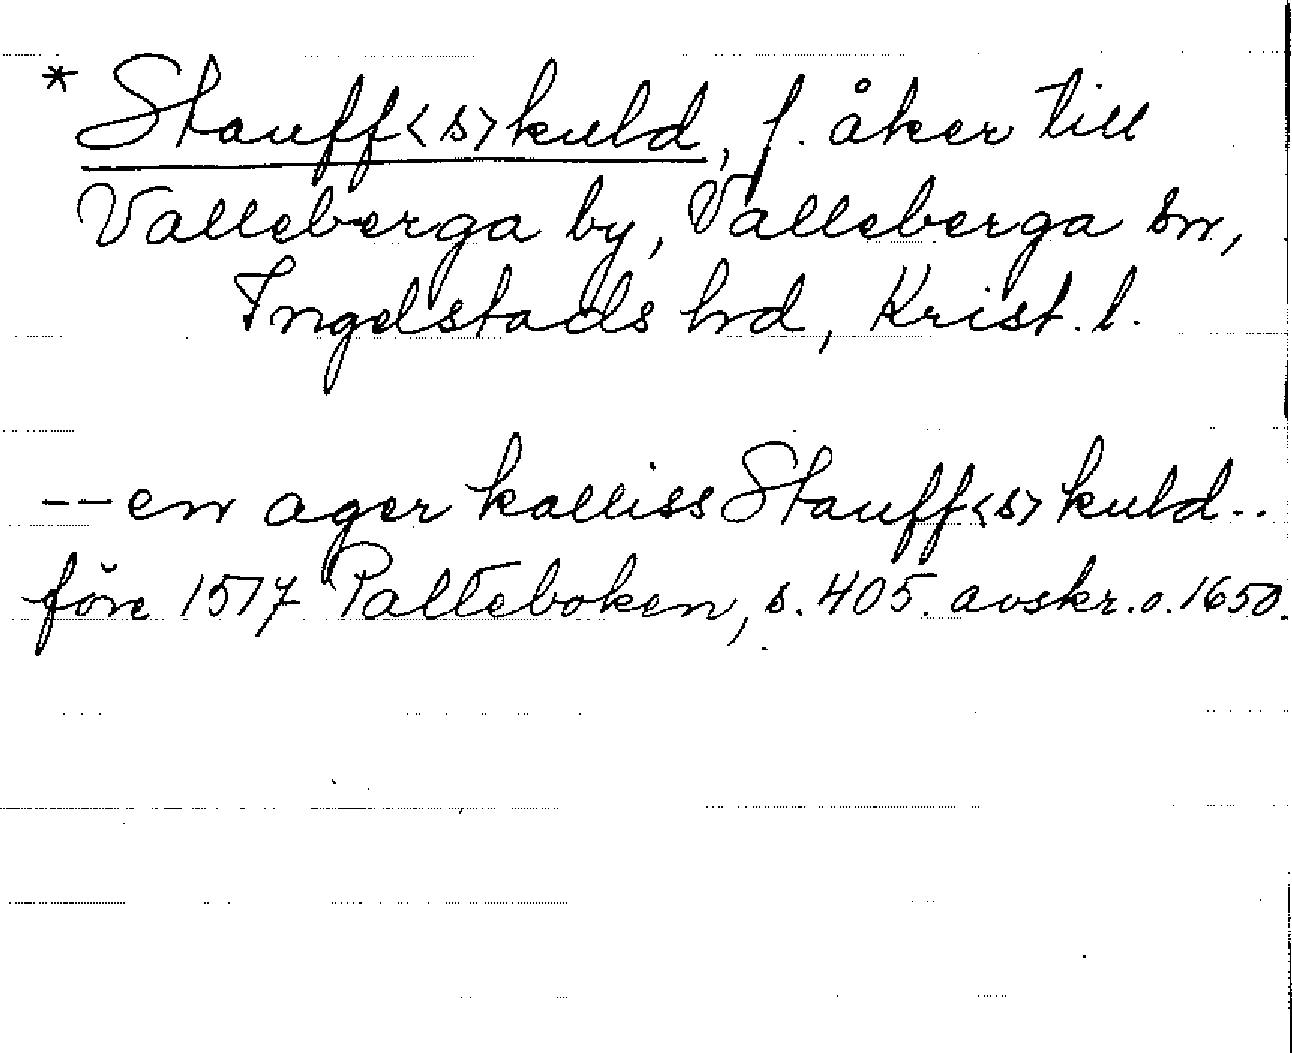 * Stauff<s>kuld, f. åker till
Valleberga by, Valleberga sn,
Ingelstads hd, Krist. l.
-- en ager kalliss Stauff<s>kuld..
före 1517 Palteboken, s. 405. avskr. o. 1650.